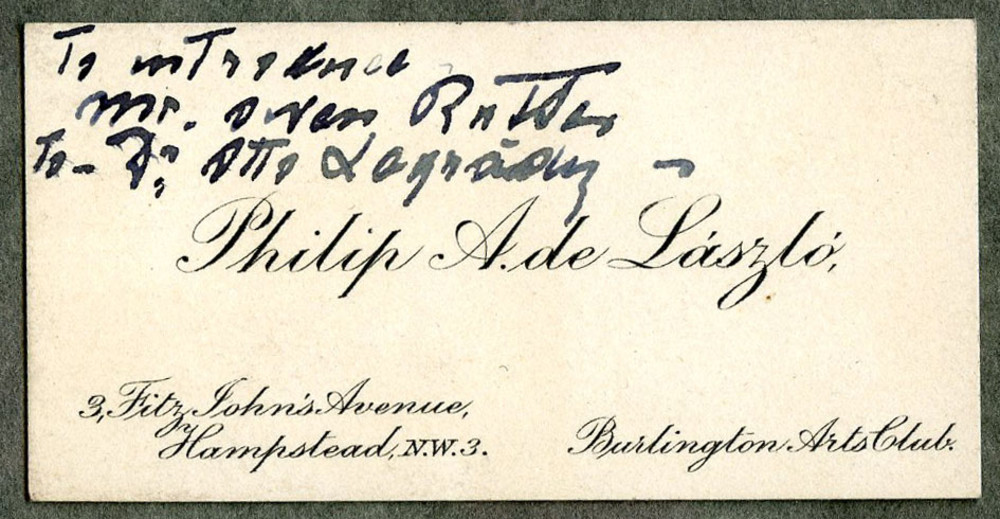 To introduce
Mr. Owen Rutter
To - Dr Otto Legrády -
Philip A. de László,
3, Fitz John's Avenue,
Hampstead, N.W.3.
Burlington Arts Club.